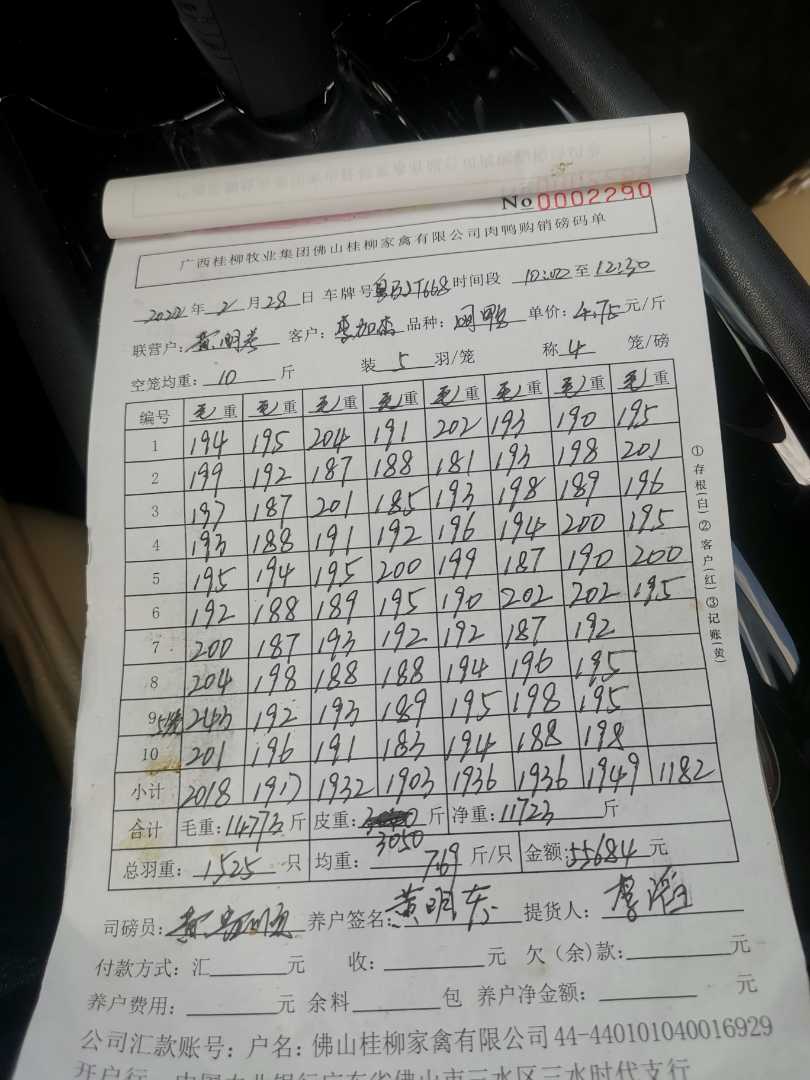 No 0002290
广西桂柳牧业集团佛山桂柳家禽有限公司肉鸭购销磅码单
2022年2月28日 车牌号 时间段 10:00至12:30
联营户: 客户: 品种: 单价:4.75元/斤
空笼均重:10斤 装5羽/笼 称4笼/磅
编号 毛重 毛重 毛重 毛重 毛重 毛重 毛重 毛重
1 194 195 204 191 202 193 190 195
2 199 192 187 188 181 193 198 201
3 197 187 201 185 193 198 189 196
4 193 188 191 192 196 194 200 195
5 195 194 195 200 199 187 190 200
6 192 188 189 195 190 202 202 195
7 200 187 193 192 192 187 192
8 204 198 188 188 194 196 195
9 243 192 193 189 195 198 195
10 201 196 191 183 194 188 198
小计 2018 1917 1932 1903 1936 1936 1949 1182
合计 毛重:14773斤 皮重:3050斤 净重:11723斤
总羽重:1525只 均重:7.69斤/只 金额:55684元
司磅员: 养户签名:黄明东 提货人:
付款方式:汇 元 收: 元 欠(余)款: 元
养户费用: 元 余料 包 养户净金额: 元
公司汇款账号:户名:佛山桂柳家禽有限公司44-440101040016929
开户行:中国农业银行广东省佛山市三水区三水时代支行
①存根(白)②客户(红)③记账(黄)